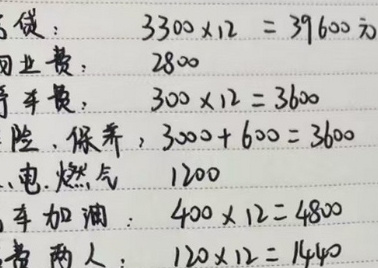 贷: 3300×12 = 39600元
业费: 2800
车费: 300×12=3600
险、保养: 3000+600=3600
、电、燃气 1200
车加油: 400×12=4800
费两人: 120×12=1440